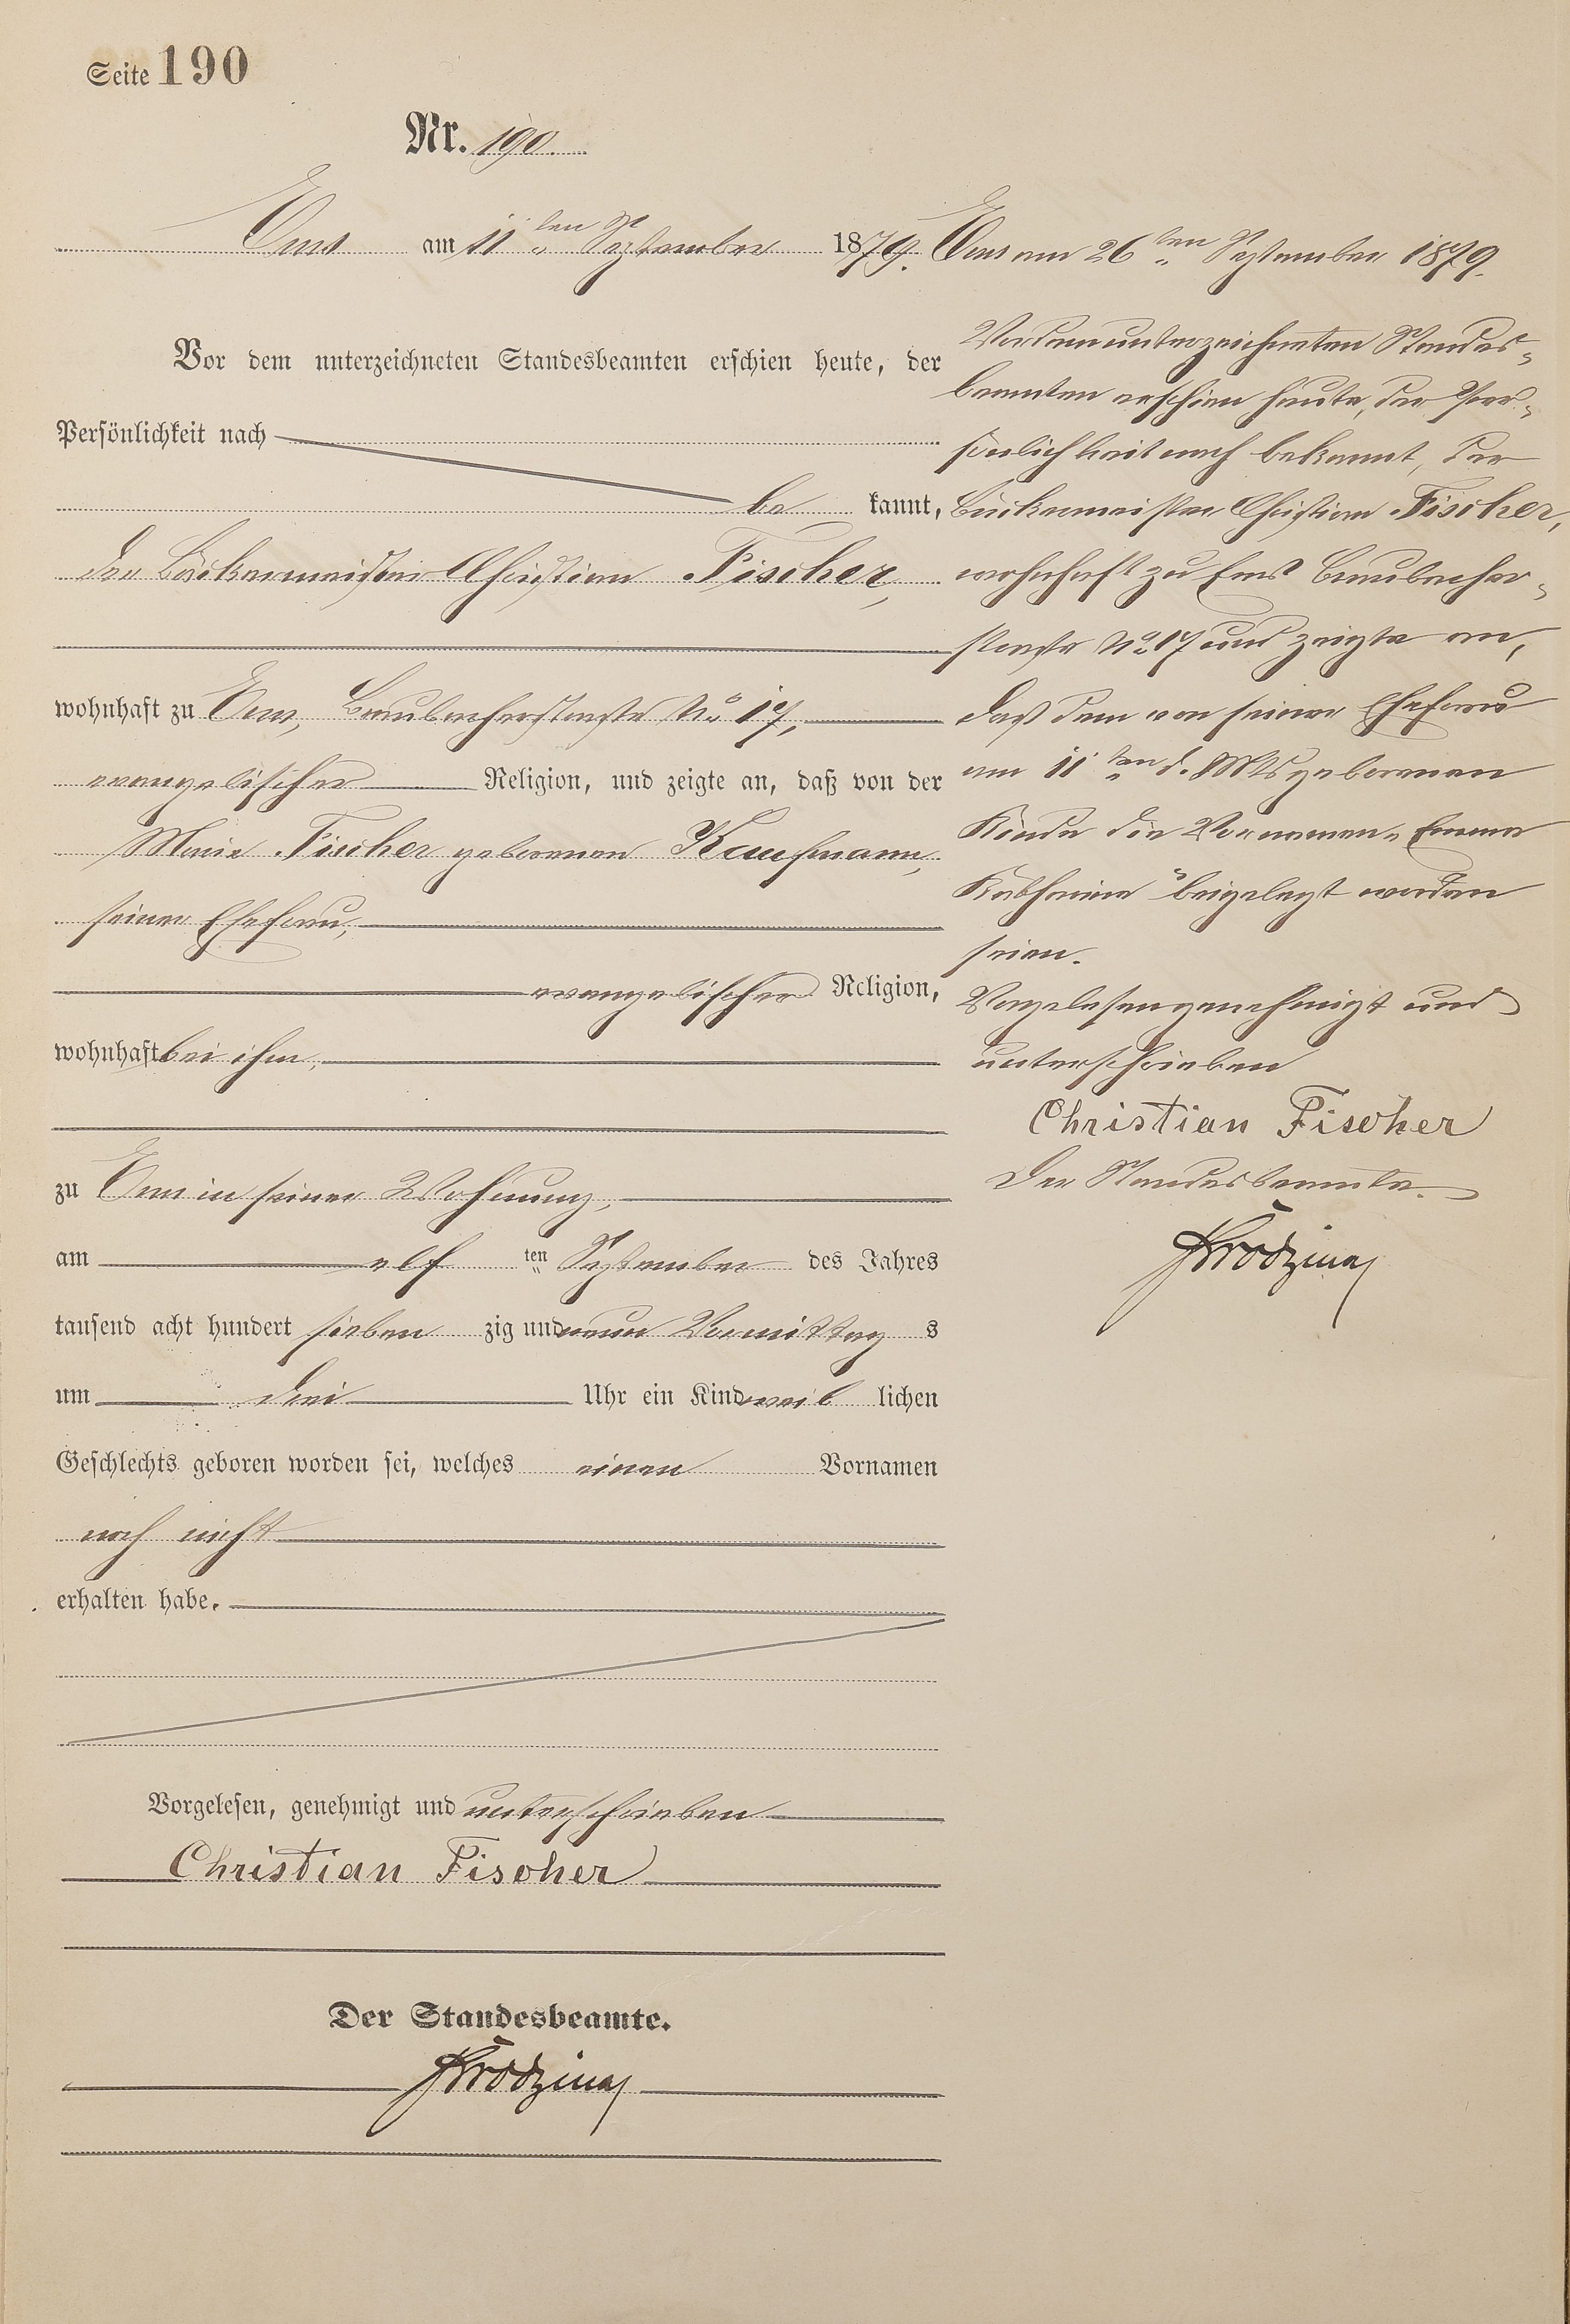 Seite 190
Nr. 190.
Ems am 11ten September 1879.
Vor dem unterzeichneten Standesbeamten erschien heute, der
Persönlichkeit nach
be kannt,
der Bäckermeister Christian Fischer,
wohnhaft zu Ems, Braubacherstraße No 17,
evangelischer Religion, und zeigte an, daß von der
Marie Fischer geborenen Kaufmann,
seiner Ehefrau,
evangelischer Religion,
wohnhaft bei ihm,
zu Ems in seiner Wohnung,
am elf ten September des Jahres
tausend acht hundert sieben zig und neun Vormittag s
um drei Uhr ein Kind weib lichen
Geschlechts geboren worden sei, welches einen Vornamen
noch nicht
erhalten habe.
Vorgelesen, genehmigt und unterschrieben
Christian Fischer
Der Standesbeamte.
Ems am 26ten September 1879.
Vor dem unterzeichneten Standes-
beamten erschien heute, der Per-
sönlichkeit nach bekannt, der
Bäckermeister Christian Fischer,
wohnhaft zu Ems Braubacher-
straße No 17 und zeigte an,
daß dem von seiner Ehefrau
am 11ten d. Mts geborenen
Kinde die Vornamen „Emma
Katharina" beigelegt worden
seien.
Vorgelesen genehmigt und
unterschrieben
Christian Fischer
Der Standesbeamte.